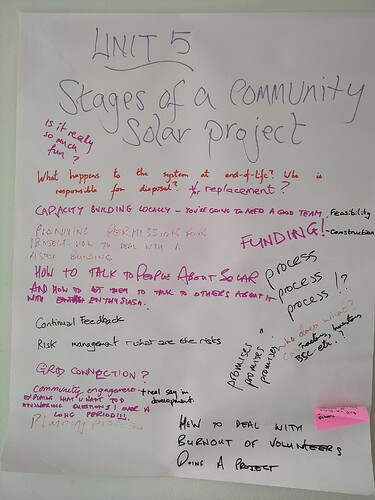 UNIT 5
Stages of a community
Solar project
Is it really
so much
fun?
What happens to the system at end-of-life? Who is
responsible for disposal? &/or replacement?
CAPACITY BUILDING LOCALLY - YOU'RE GOING TO NEED A GOOD TEAM
Feasibility
FUNDING!
-Construction
PLANNING PERMISSION FOR
HOW TO DEAL WITH A
LISTED BUILDING
HOW TO TALK TO PEOPLE ABOUT SOLAR
AND HOW TO GET THEM TO TALK TO OTHERS ABOUT IT
WITH ENTHUSIASM.
process
process
process !?
Continual Feedback
Risk management & what are the risks
promises"
promises
promises
who does what?
BSC etc.?
GRID CONNECTION?
Community engagement + real say in
development
EXPLAINING WHAT U WANT TO DO
ANSWERING QUESTIONS! OVER A
LONG PERIOD!!!
Planning process
HOW TO DEAL WITH
BURNOUT OF VOLUNTEERS
DOING A PROJECT